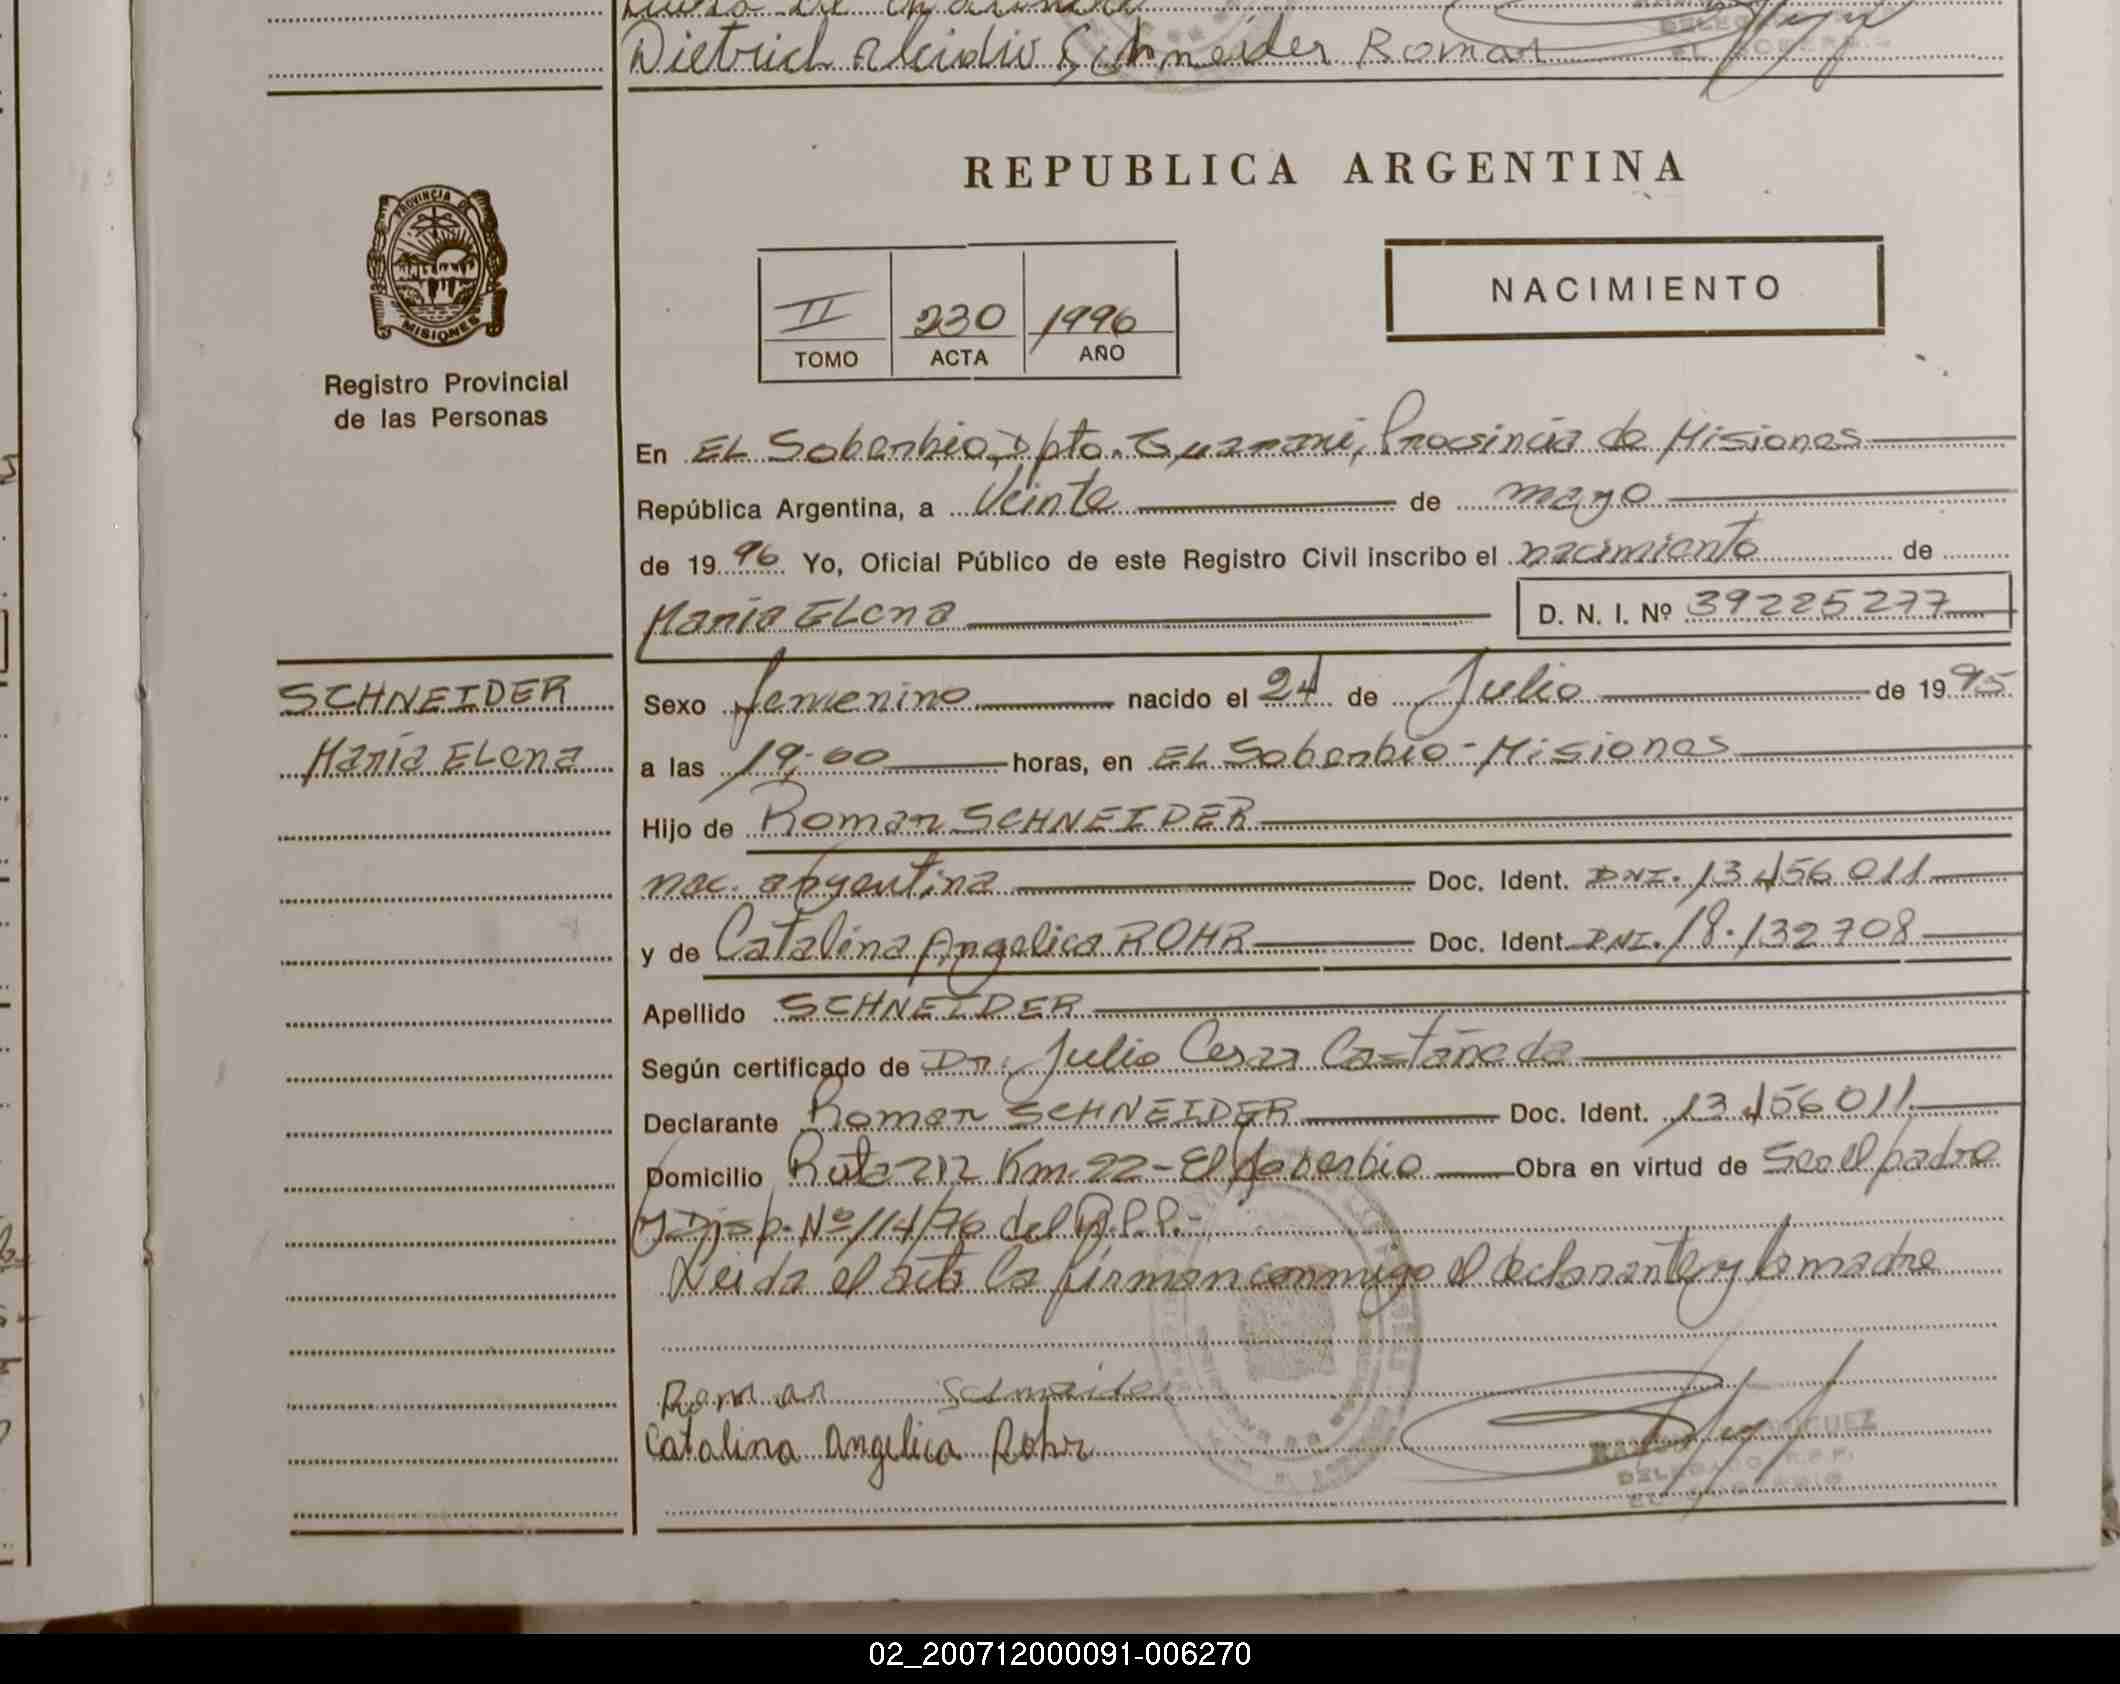 Dietrich Schneider Roman
REPUBLICA ARGENTINA
PROVINCIA DE
MISIONES
Registro Provincial
de las Personas
II 230 1996
TOMO ACTA AÑO
NACIMIENTO
En EL Soberbio, Dpto. Guaraní, Provincia de Misiones
República Argentina, a Veinte de mayo
de 1996 Yo, Oficial Público de este Registro Civil inscribo el nacimiento de
María ELena D. N. I. Nº 39225277
SCHNEIDER
María ELena
Sexo femenino nacido el 24 de Julio de 1995
a las 19:00 horas, en EL Soberbio - Misiones
Hijo de Roman SCHNEIDER
nac. argentina Doc. Ident. DNI. 13456011
y de Catalina Angelica ROHR Doc. Ident. DNI. 18.132708
Apellido SCHNEIDER
Según certificado de Dr. Julio Cesar Castañeda
Declarante Roman SCHNEIDER Doc. Ident. 13456011
Domicilio Ruta 212 Km. 22 - El Soberbio Obra en virtud de Ser el padre
y Disp. Nº 114/96 del R.P.P.-
Leida el acta la firman conmigo el declarante y la madre
Roman Schneider
Catalina Angelica Rohr
02_200712000091-006270